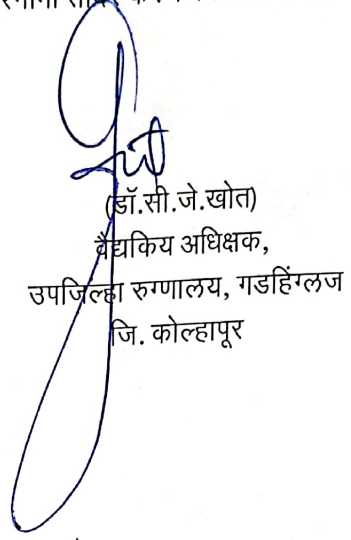 (डॉ.सी.जे.खोत)
वैद्यकिय अधिक्षक,
उपजिल्हा रुग्णालय, गडहिंग्लज
जि. कोल्हापूर